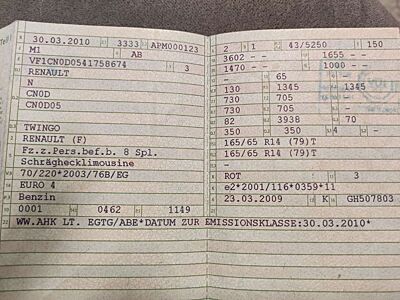 30.03.2010 3333 APM000123
M1 AB
VF1CN0D0541758674 3
RENAULT
N
CN0D
CN0D05
TWINGO
RENAULT (F)
Fz.z.Pers.bef.b. 8 Spl.
Schräghecklimousine
70/220*2003/76B/EG
EURO 4
Benzin
0001 0462 1149
2 1 43/5250 150
3602 - - 1655 - -
1470 - - 1000 - -
- 65 -
130 1345 1345
730 705 -
730 705 -
82 3938 70
350 350 4 -
165/65 R14 (79)T
165/65 R14 (79)T
-
ROT 3
e2*2001/116*0359*11
23.03.2009 K GH507803
WW.AHK LT. EGTG/ABE*DATUM ZUR EMISSIONSKLASSE:30.03.2010*